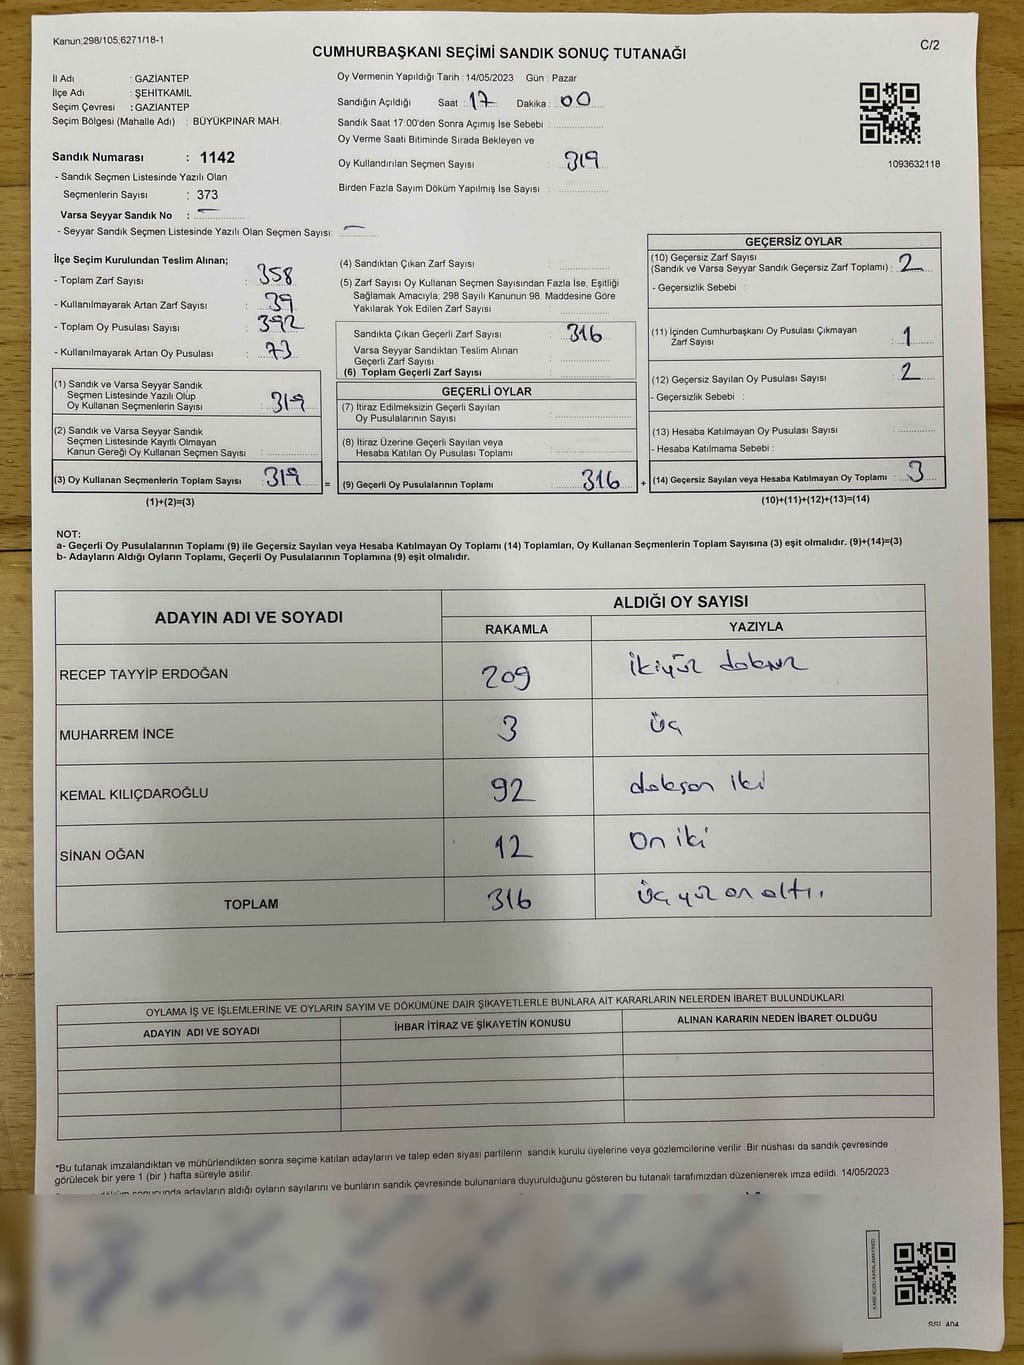 Kanun;298/105,6271/18-1
C/2
CUMHURBAŞKANI SEÇİMİ SANDIK SONUÇ TUTANAĞI
İl Adı : GAZİANTEP
İlçe Adı : ŞEHİTKAMİL
Seçim Çevresi : GAZİANTEP
Seçim Bölgesi (Mahalle Adı) : BÜYÜKPINAR MAH.
Sandık Numarası : 1142
- Sandık Seçmen Listesinde Yazılı Olan
Seçmenlerin Sayısı : 373
Varsa Seyyar Sandık No : —
- Seyyar Sandık Seçmen Listesinde Yazılı Olan Seçmen Sayısı: —
Oy Vermenin Yapıldığı Tarih : 14/05/2023 Gün : Pazar
Sandığın Açıldığı Saat : 17 Dakika : 00
Sandık Saat 17:00'den Sonra Açımış İse Sebebi :
Oy Verme Saati Bitiminde Sırada Bekleyen ve
Oy Kullandırılan Seçmen Sayısı : 319
Birden Fazla Sayım Döküm Yapılmış İse Sayısı :
1093632118
İlçe Seçim Kurulundan Teslim Alınan;
- Toplam Zarf Sayısı : 358
- Kullanılmayarak Artan Zarf Sayısı : 39
- Toplam Oy Pusulası Sayısı : 392
- Kullanılmayarak Artan Oy Pusulası : 73
(1) Sandık ve Varsa Seyyar Sandık
Seçmen Listesinde Yazılı Olup
Oy Kullanan Seçmenlerin Sayısı : 319
(2) Sandık ve Varsa Seyyar Sandık
Seçmen Listesinde Kayıtlı Olmayan
Kanun Gereği Oy Kullanan Seçmen Sayısı :
(3) Oy Kullanan Seçmenlerin Toplam Sayısı : 319 =
(1)+(2)=(3)
(4) Sandıktan Çıkan Zarf Sayısı :
(5) Zarf Sayısı Oy Kullanan Seçmen Sayısından Fazla İse, Eşitliği
Sağlamak Amacıyla; 298 Sayılı Kanunun 98. Maddesine Göre
Yakılarak Yok Edilen Zarf Sayısı :
Sandıkta Çıkan Geçerli Zarf Sayısı : 316
Varsa Seyyar Sandıktan Teslim Alınan
Geçerli Zarf Sayısı :
(6) Toplam Geçerli Zarf Sayısı :
GEÇERLİ OYLAR
(7) İtiraz Edilmeksizin Geçerli Sayılan
Oy Pusulalarının Sayısı :
(8) İtiraz Üzerine Geçerli Sayılan veya
Hesaba Katılan Oy Pusulası Toplamı :
(9) Geçerli Oy Pusulalarının Toplamı : 316 +
GEÇERSİZ OYLAR
(10) Geçersiz Zarf Sayısı
(Sandık ve Varsa Seyyar Sandık Geçersiz Zarf Toplamı) : 2
- Geçersizlik Sebebi :
(11) İçinden Cumhurbaşkanı Oy Pusulası Çıkmayan
Zarf Sayısı : 1
(12) Geçersiz Sayılan Oy Pusulası Sayısı : 2
- Geçersizlik Sebebi :
(13) Hesaba Katılmayan Oy Pusulası Sayısı :
- Hesaba Katılmama Sebebi :
(14) Geçersiz Sayılan veya Hesaba Katılmayan Oy Toplamı : 3
(10)+(11)+(12)+(13)=(14)
NOT:
a- Geçerli Oy Pusulalarının Toplamı (9) ile Geçersiz Sayılan veya Hesaba Katılmayan Oy Toplamı (14) Toplamları, Oy Kullanan Seçmenlerin Toplam Sayısına (3) eşit olmalıdır. (9)+(14)=(3)
b- Adayların Aldığı Oyların Toplamı, Geçerli Oy Pusulalarının Toplamına (9) eşit olmalıdır.
ADAYIN ADI VE SOYADI ALDIĞI OY SAYISI
RAKAMLA YAZIYLA
RECEP TAYYİP ERDOĞAN 209 ikiyüz dokuz
MUHARREM İNCE 3 üç
KEMAL KILIÇDAROĞLU 92 doksan iki
SİNAN OĞAN 12 on iki
TOPLAM 316 üç yüz on altı.
OYLAMA İŞ VE İŞLEMLERİNE VE OYLARIN SAYIM VE DÖKÜMÜNE DAİR ŞİKAYETLERLE BUNLARA AİT KARARLARIN NELERDEN İBARET BULUNDUKLARI
ADAYIN ADI VE SOYADI İHBAR İTİRAZ VE ŞİKAYETİN KONUSU ALINAN KARARIN NEDEN İBARET OLDUĞU
*Bu tutanak imzalandıktan ve mühürlendikten sonra seçime katılan adayların ve talep eden siyasi partilerin sandık kurulu üyelerine veya gözlemcilerine verilir. Bir nüshası da sandık çevresinde
görülecek bir yere 1 (bir ) hafta süreyle asılır.
döküm sonucunda adayların aldığı oyların sayılarını ve bunların sandık çevresinde bulunanlara duyurulduğunu gösteren bu tutanak tarafımızdan düzenlenerek imza edildi. 14/05/2023